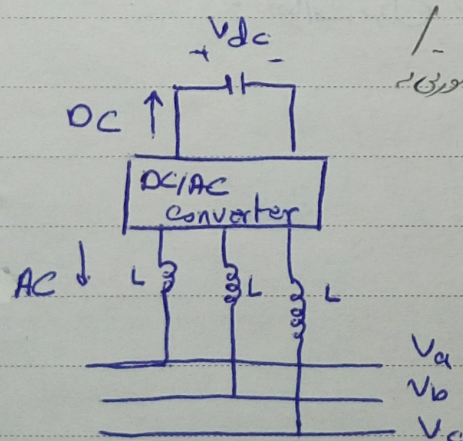 Vdc
+ -
DC
DC/AC
converter
AC
L
L
L
Va
Vb
Vc